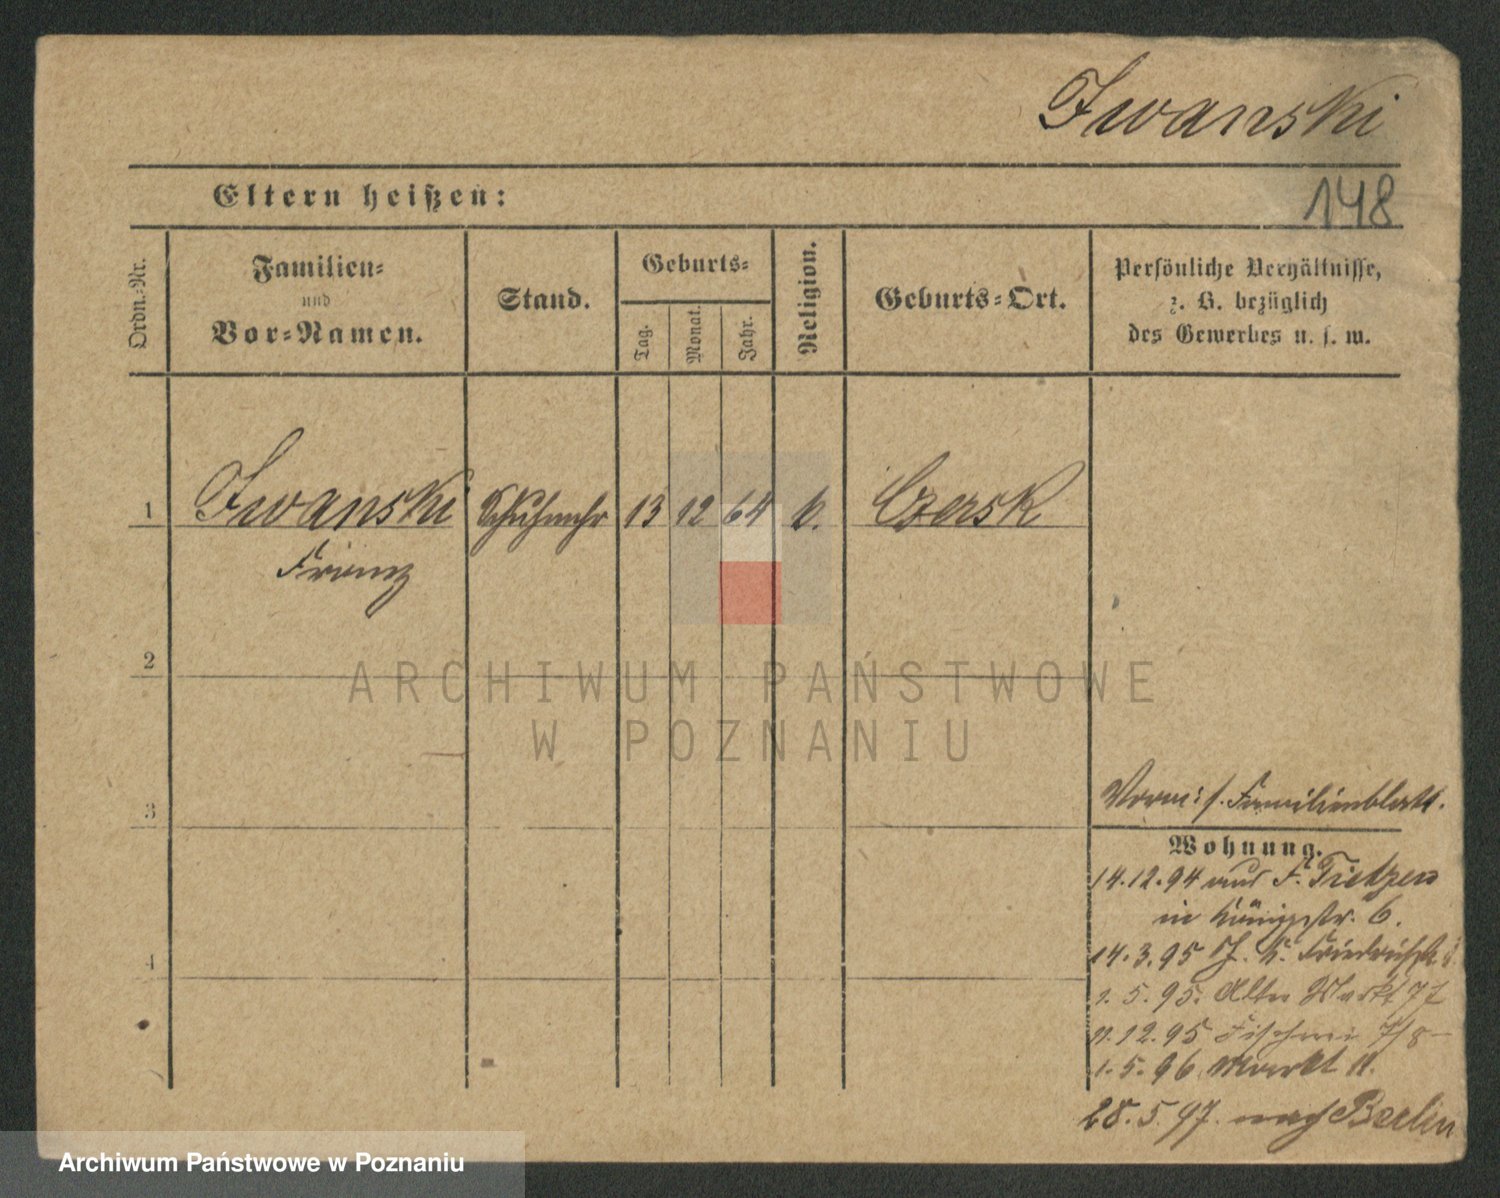 Iwanski
Eltern heißen:
148
Ordn.-Nr.
Familien-
und
Vor-Namen.
Stand.
Geburts-
Tag.
Monat.
Jahr.
Religion.
Geburts-Ort.
Persönliche Verhältnisse,
z. B. bezüglich
des Gewerbes u. s. w.
1 Iwanski 13 12 64 k. Czersk
Franz
2
ARCHIWUM PAŃSTWOWE
W POZNANIU
3
s. Familienblatt.
Wohnung.
14.12.94
in Königstr. 6.
14.3.95
1.5.95. Alter Markt
11.12.95 Fischerei 7/8
1.5.96 Markt 11.
28.5.97. nach Berlin
4
Archiwum Państwowe w Poznaniu